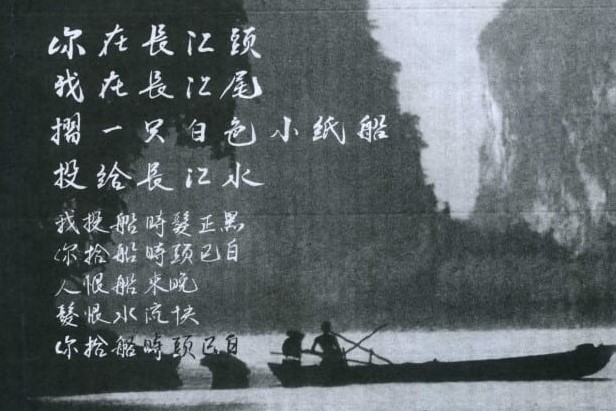 你在長江頭
我在長江尾
摺一只白色小紙船
投給長江水
我投船時髮正黑
你拾船時頭已白
人恨船来晚
髮恨水流快
你拾船時頭已白